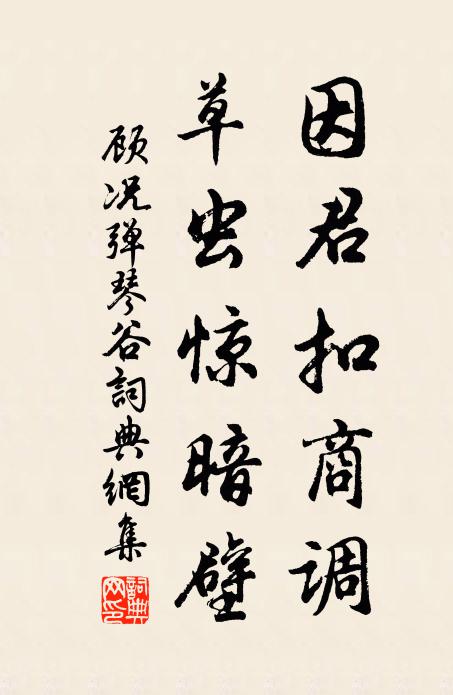 因君扣商调
草虫惊暗壁
顾况弹琴谷詞典網集
詞典網印